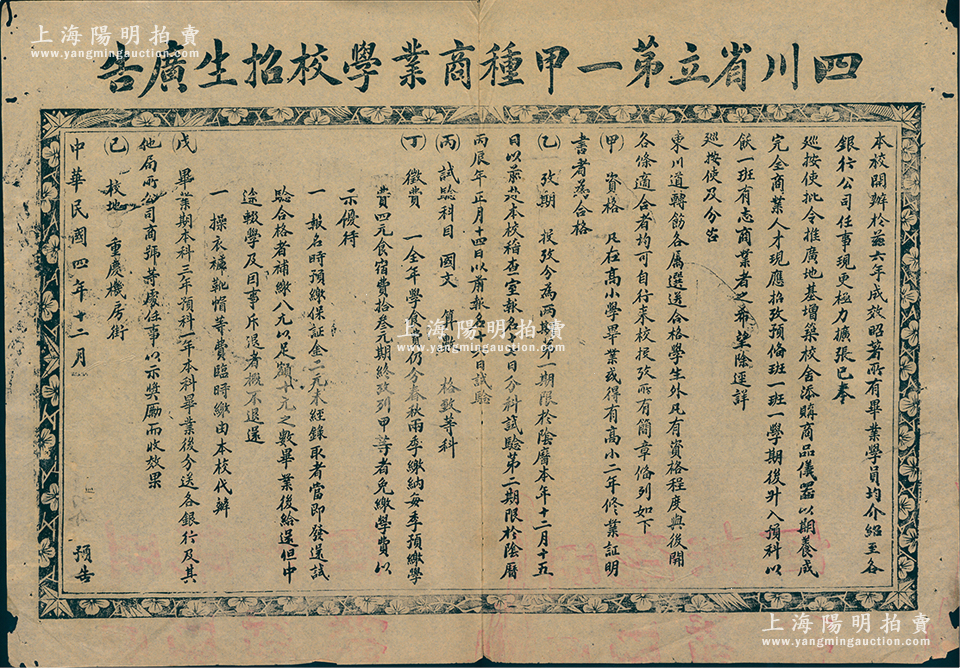 上海陽明拍賣
www.yangmingauction.com
四川省立第一甲種商業學校招生廣告
本校開辦於茲六年成效昭著所有畢業學員均介紹至各
銀行公司任事現更極力擴張已奉
巡按使批令推廣地基增築校舍添購商品儀器以期養成
完全商業人才現應招攷預備班一班一學期後升入預科以
飫一班有志商業者之希望除逕詳
巡按使及分咨
東川道轉飭各屬選送合格學生外凡有資格程度與後開
各條適合者均可自行來校投攷所有簡章備列如下
(甲) 資格 凡在高小學畢業或得有高小二年修業証明
書者為合格
(乙) 攷期 投攷分為兩期第一期限於陰曆本年十二月十五
日以前赴本校稽查室報名 日分科試驗第二期限於陰曆
丙辰年正月十四日以前報名 日試驗
(丙) 試驗科目 國文 算 格致等科
(丁) 徵費 一全年學食 費仍分春秋兩季繳納每季預繳學
費四元食宿費拾叁元期終攷列甲等者免繳學費以
示優待
一 報名時預繳保証金二元未經錄取者當即發還試
驗合格者補繳八元以足額十元之數畢業後給還但中
途輟學及因事斥退者概不退還
一 操衣褲靴帽等費臨時繳由本校代辦
(戊) 畢業期本科三年預科一年本科畢業後分送各銀行及其
他局所公司商號等處任事以示奬勵而收效果
(己) 校地 重慶機房街
中華民國四年十二月 預告
上海陽明拍賣
www.yangmingauction.com
上海陽明拍賣
www.yangmingauction.com